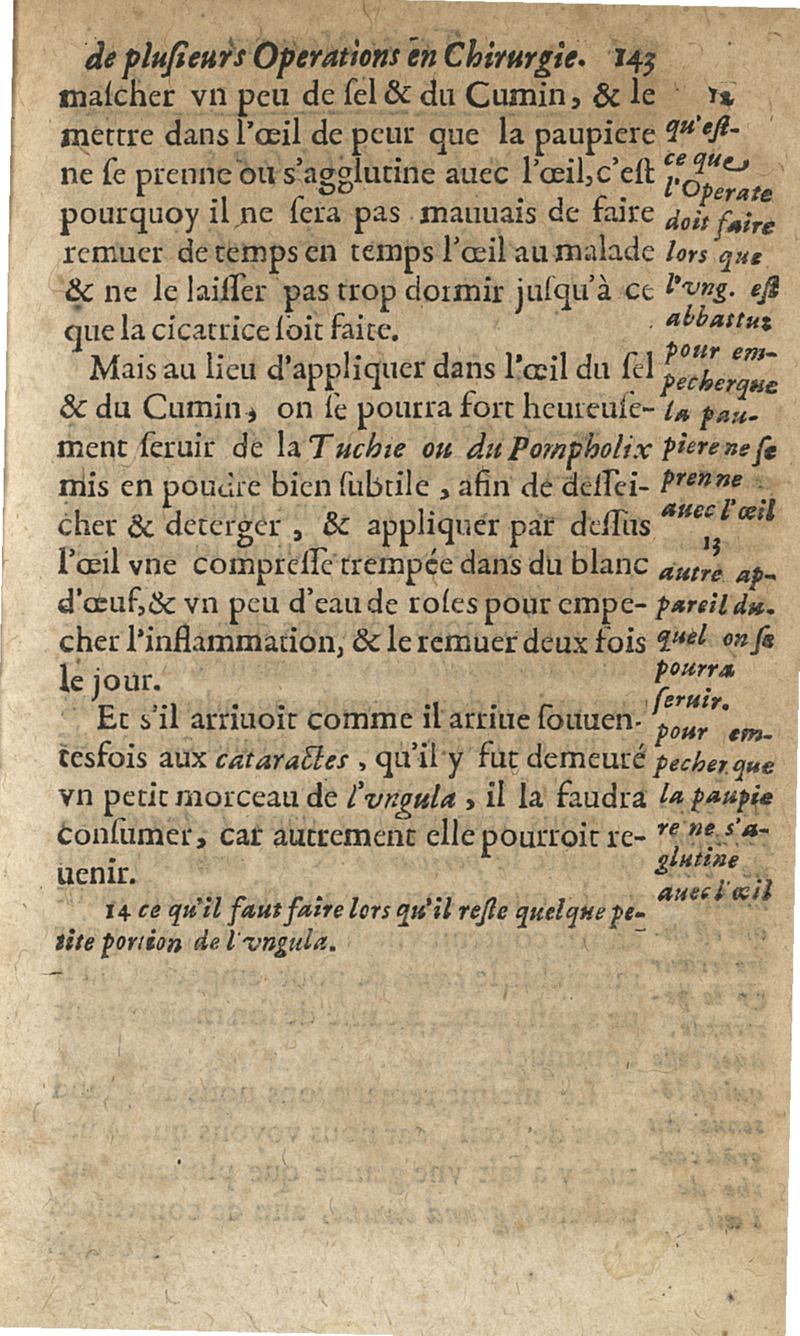 de pluſieurs Operations en Chirurgie. 143
maſcher vn peu de ſel & du Cumin, & le
mettre dans l'œil de peur que la paupiere
ne ſe prenne ou s'agglutine auec l'œil, c'eſt
pourquoy il ne ſera pas mauuais de faire
remuer de temps en temps l'œil au malade
& ne le laiſſer pas trop dormir juſqu'à ce
que la cicatrice ſoit faite.
Mais au lieu d'appliquer dans l'œil du ſel
& du Cumin, on ſe pourra fort heureuſe-
ment ſeruir de la Tuchie ou du Pompholix
mis en poudre bien ſubtile, afin de deſſei-
cher & deterger, & appliquer par deſſus
l'œil vne compreſſe trempée dans du blanc
d'œuf, & vn peu d'eau de roſes pour empe-
cher l'inflammation, & le remuer deux fois
le jour.
Et s'il arriuoit comme il arriue ſouuen-
tesfois aux cataractes, qu'il y fut demeuré
vn petit morceau de l'vngula, il la faudra
conſumer, car autrement elle pourroit re-
uenir.
12
qu'eſt-
ce que
l'Operate
doit faire
lors que
l'vng. eſt
abbattuz
pour em-
pecher que
la pau-
piere ne ſe
prenne
auec l'œil
13
autre ap-
pareil du-
quel on ſe
pourra
ſeruir.
pour em-
pecher que
la paupie
re ne s'a-
glutine
auec l'œil
14 ce qu'il faut faire lors qu'il reſte quelque pe-
tite portion de l'vngula.